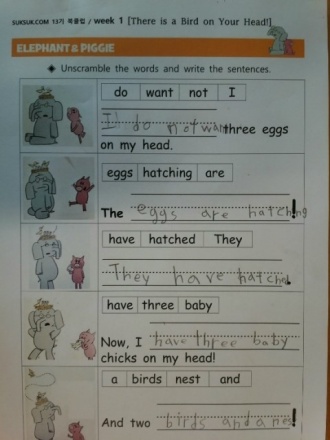 SUKSUK.COM 13기 북클럽 / week 1 [There is a Bird on Your Head!]
ELEPHANT & PIGGIE
◈ Unscramble the words and write the sentences.
do want not I
I do not want three eggs
on my head.
eggs hatching are
The eggs are hatching!
have hatched They
They have hatched.
have three baby
Now, I have three baby
chicks on my head!
a birds nest and
And two birds and a nes!